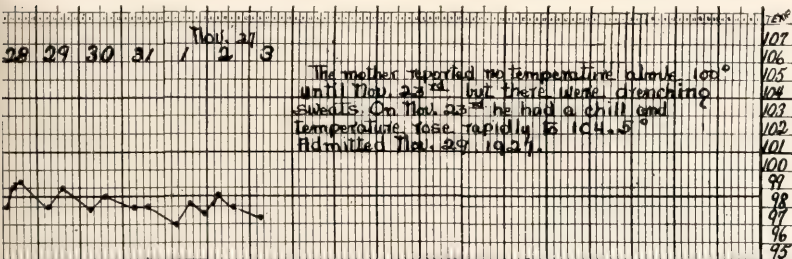 TEMP
Nov. 27
107
28 29 30 31 1 2 3
106
The mother reported no temperature above 100°
105
until Nov. 23rd but there were drenching
104
sweats. On Nov. 23rd he had a chill and
103
temperature rose rapidly to 104.5°
102
Admitted Nov. 29 1927.
101
100
99
98
97
96
95